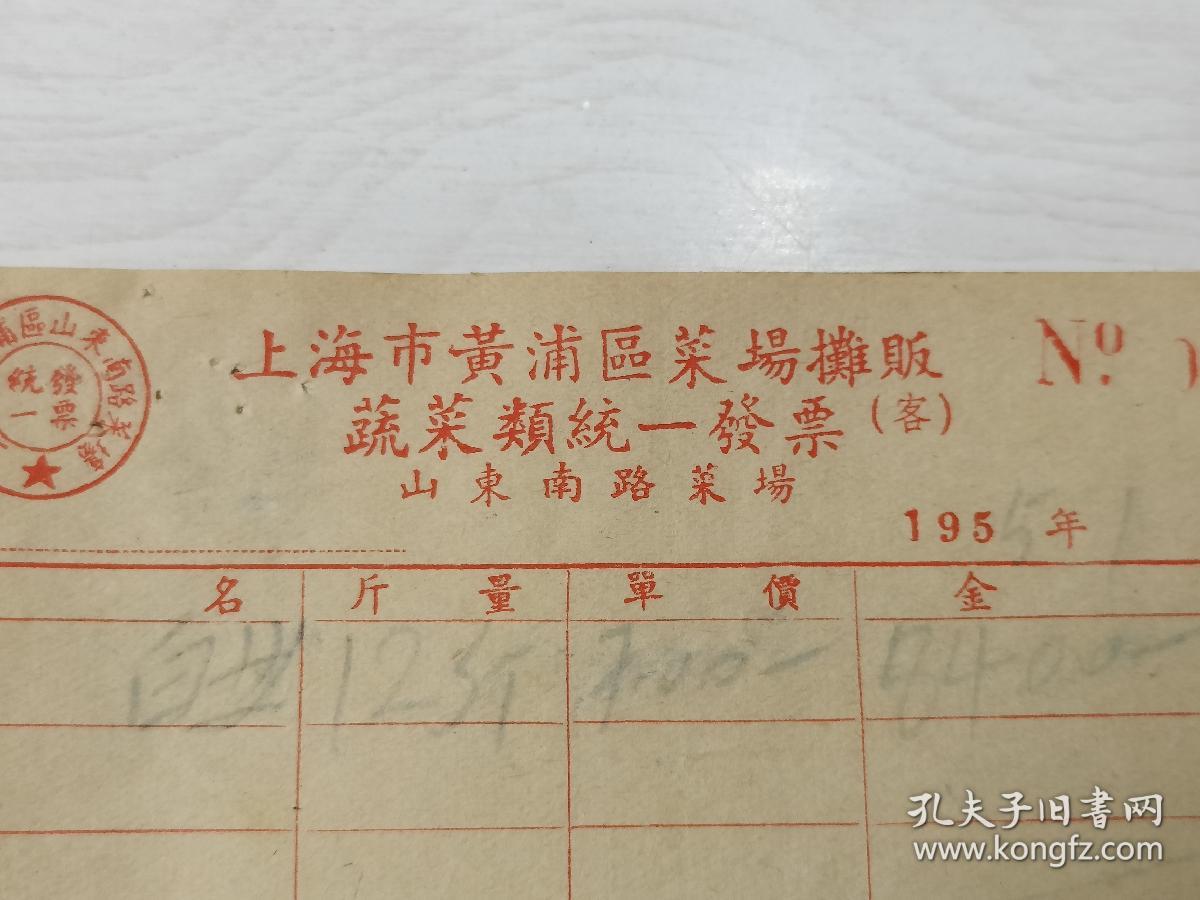 上海市黃浦區菜場攤販 Nº
蔬菜類統一發票(客)
山東南路菜場
浦區山東南路菜場
統一發票
1955年 1
名 斤量 單價 金
12斤 8400-
孔夫子旧书网
www.kongfz.com